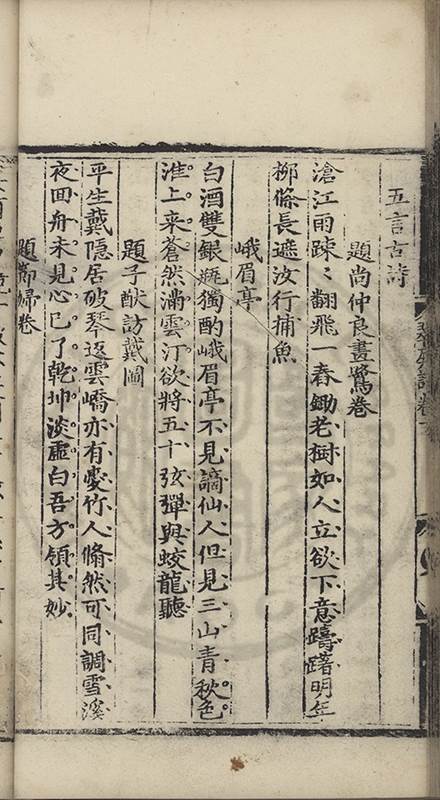 五言古詩
題尚仲良畫鷺卷
滄江雨疎〻翻飛一舂鋤老樹如人立欲下意躊躇明年
柳條長遮汝行捕魚
峨眉亭
白酒雙銀瓶獨酌峨眉亭不見謫仙人但見三山青秋色
淮上来蒼然滿雲汀欲將五十弦彈與蛟龍聽
題子猷訪戴圖
平生戴隱居破琴返雲嶠亦有愛竹人翛然可同調雪溪
夜回舟未見心已了乾坤淡虛白吾方領其妙